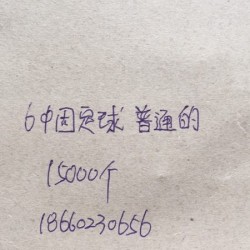 6中国足球 普通的
15000个
18660230656